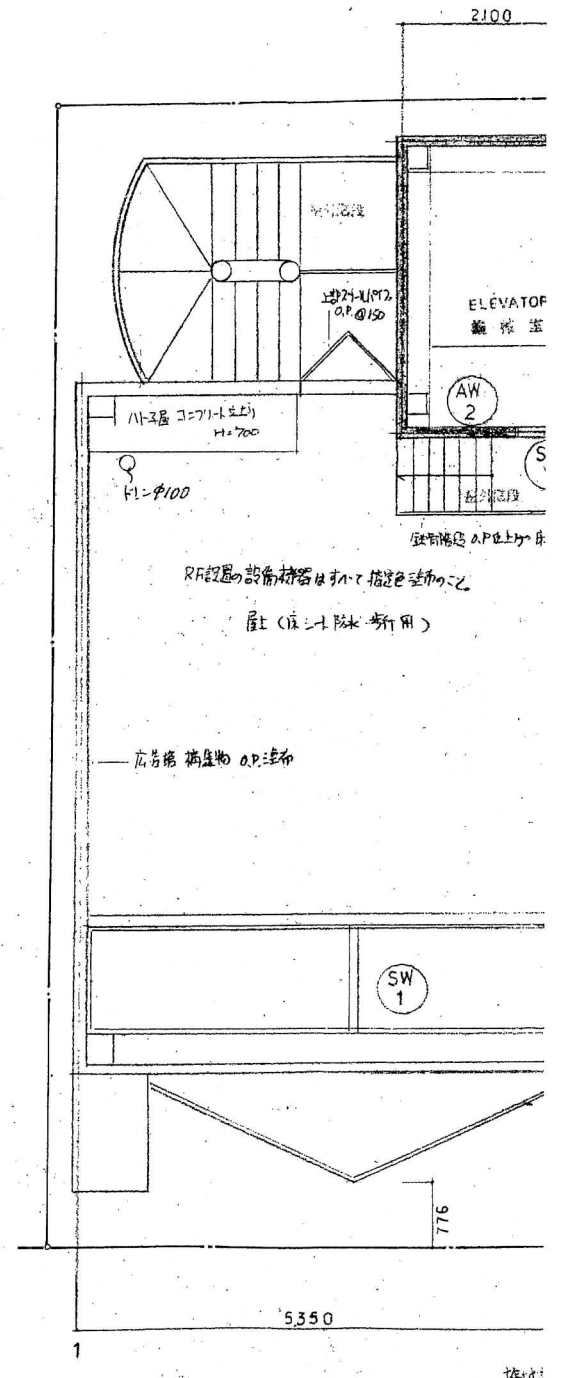 2,100
屋外階段
上部スチールパイプ
O.P. @150
ELEVATOR
機械室
AW
2
ハト小屋 コンクリート立上り
H=700
ドレンφ100
S
屋外階段
鉄骨階段 O.P仕上げの
RF設置の設備機器はすべて指定色塗布のこと。
屋上(床シート防水 歩行用)
広告塔 構築物 O.P.塗布
SW
1
776
5,350
1